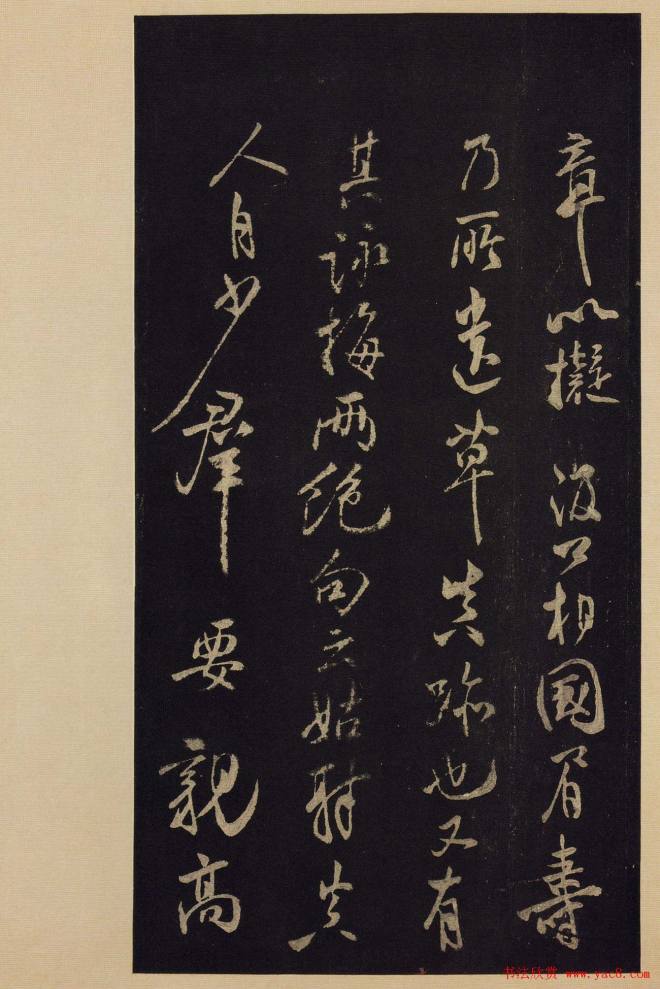 章以擬汲公相國眉壽
乃所遺草真跡也又有
其詠梅兩絕句云姑射真
人自少群要親高
书法欣赏 www.yac8.com